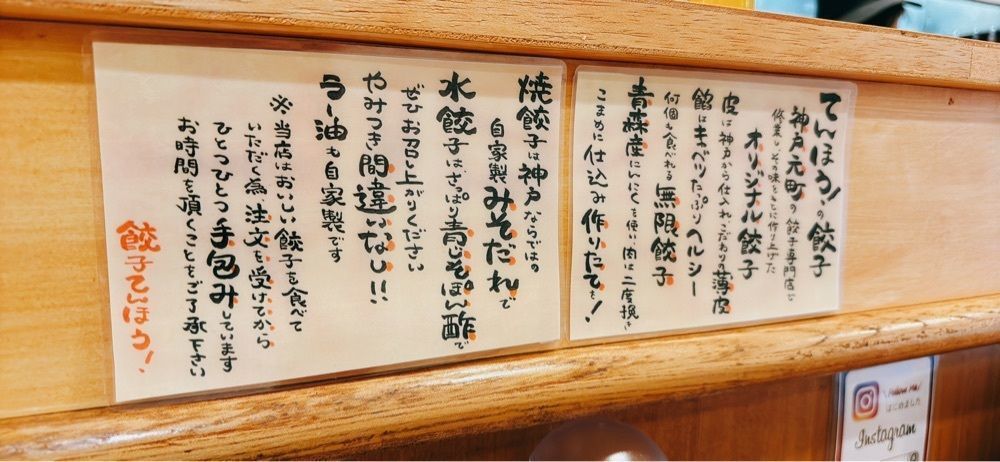 てんほう!の餃子
神戸元町の餃子専門店で
修業し、その味をもとに作り上げた
オリジナル餃子
皮は神戸から仕入れ、こだわりの薄皮
餡はキャベツたっぷりヘルシー
何個も食べれる無限餃子
青森産にんにくを使い、肉は二度挽き
こまめに仕込み作りたてを!
焼餃子は神戸ならではの
自家製みそだれで
水餃子は、さっぱり青じそぽん酢で
ぜひお召し上がりください
やみつき間違いなし!!
ラー油も自家製です
※当店はおいしい餃子を食べて
いただく為、注文を受けてから
ひとつひとつ手包みしています
お時間を頂くことをご了承下さい
餃子てんほう!
Follow Me
はじめました
Instagram